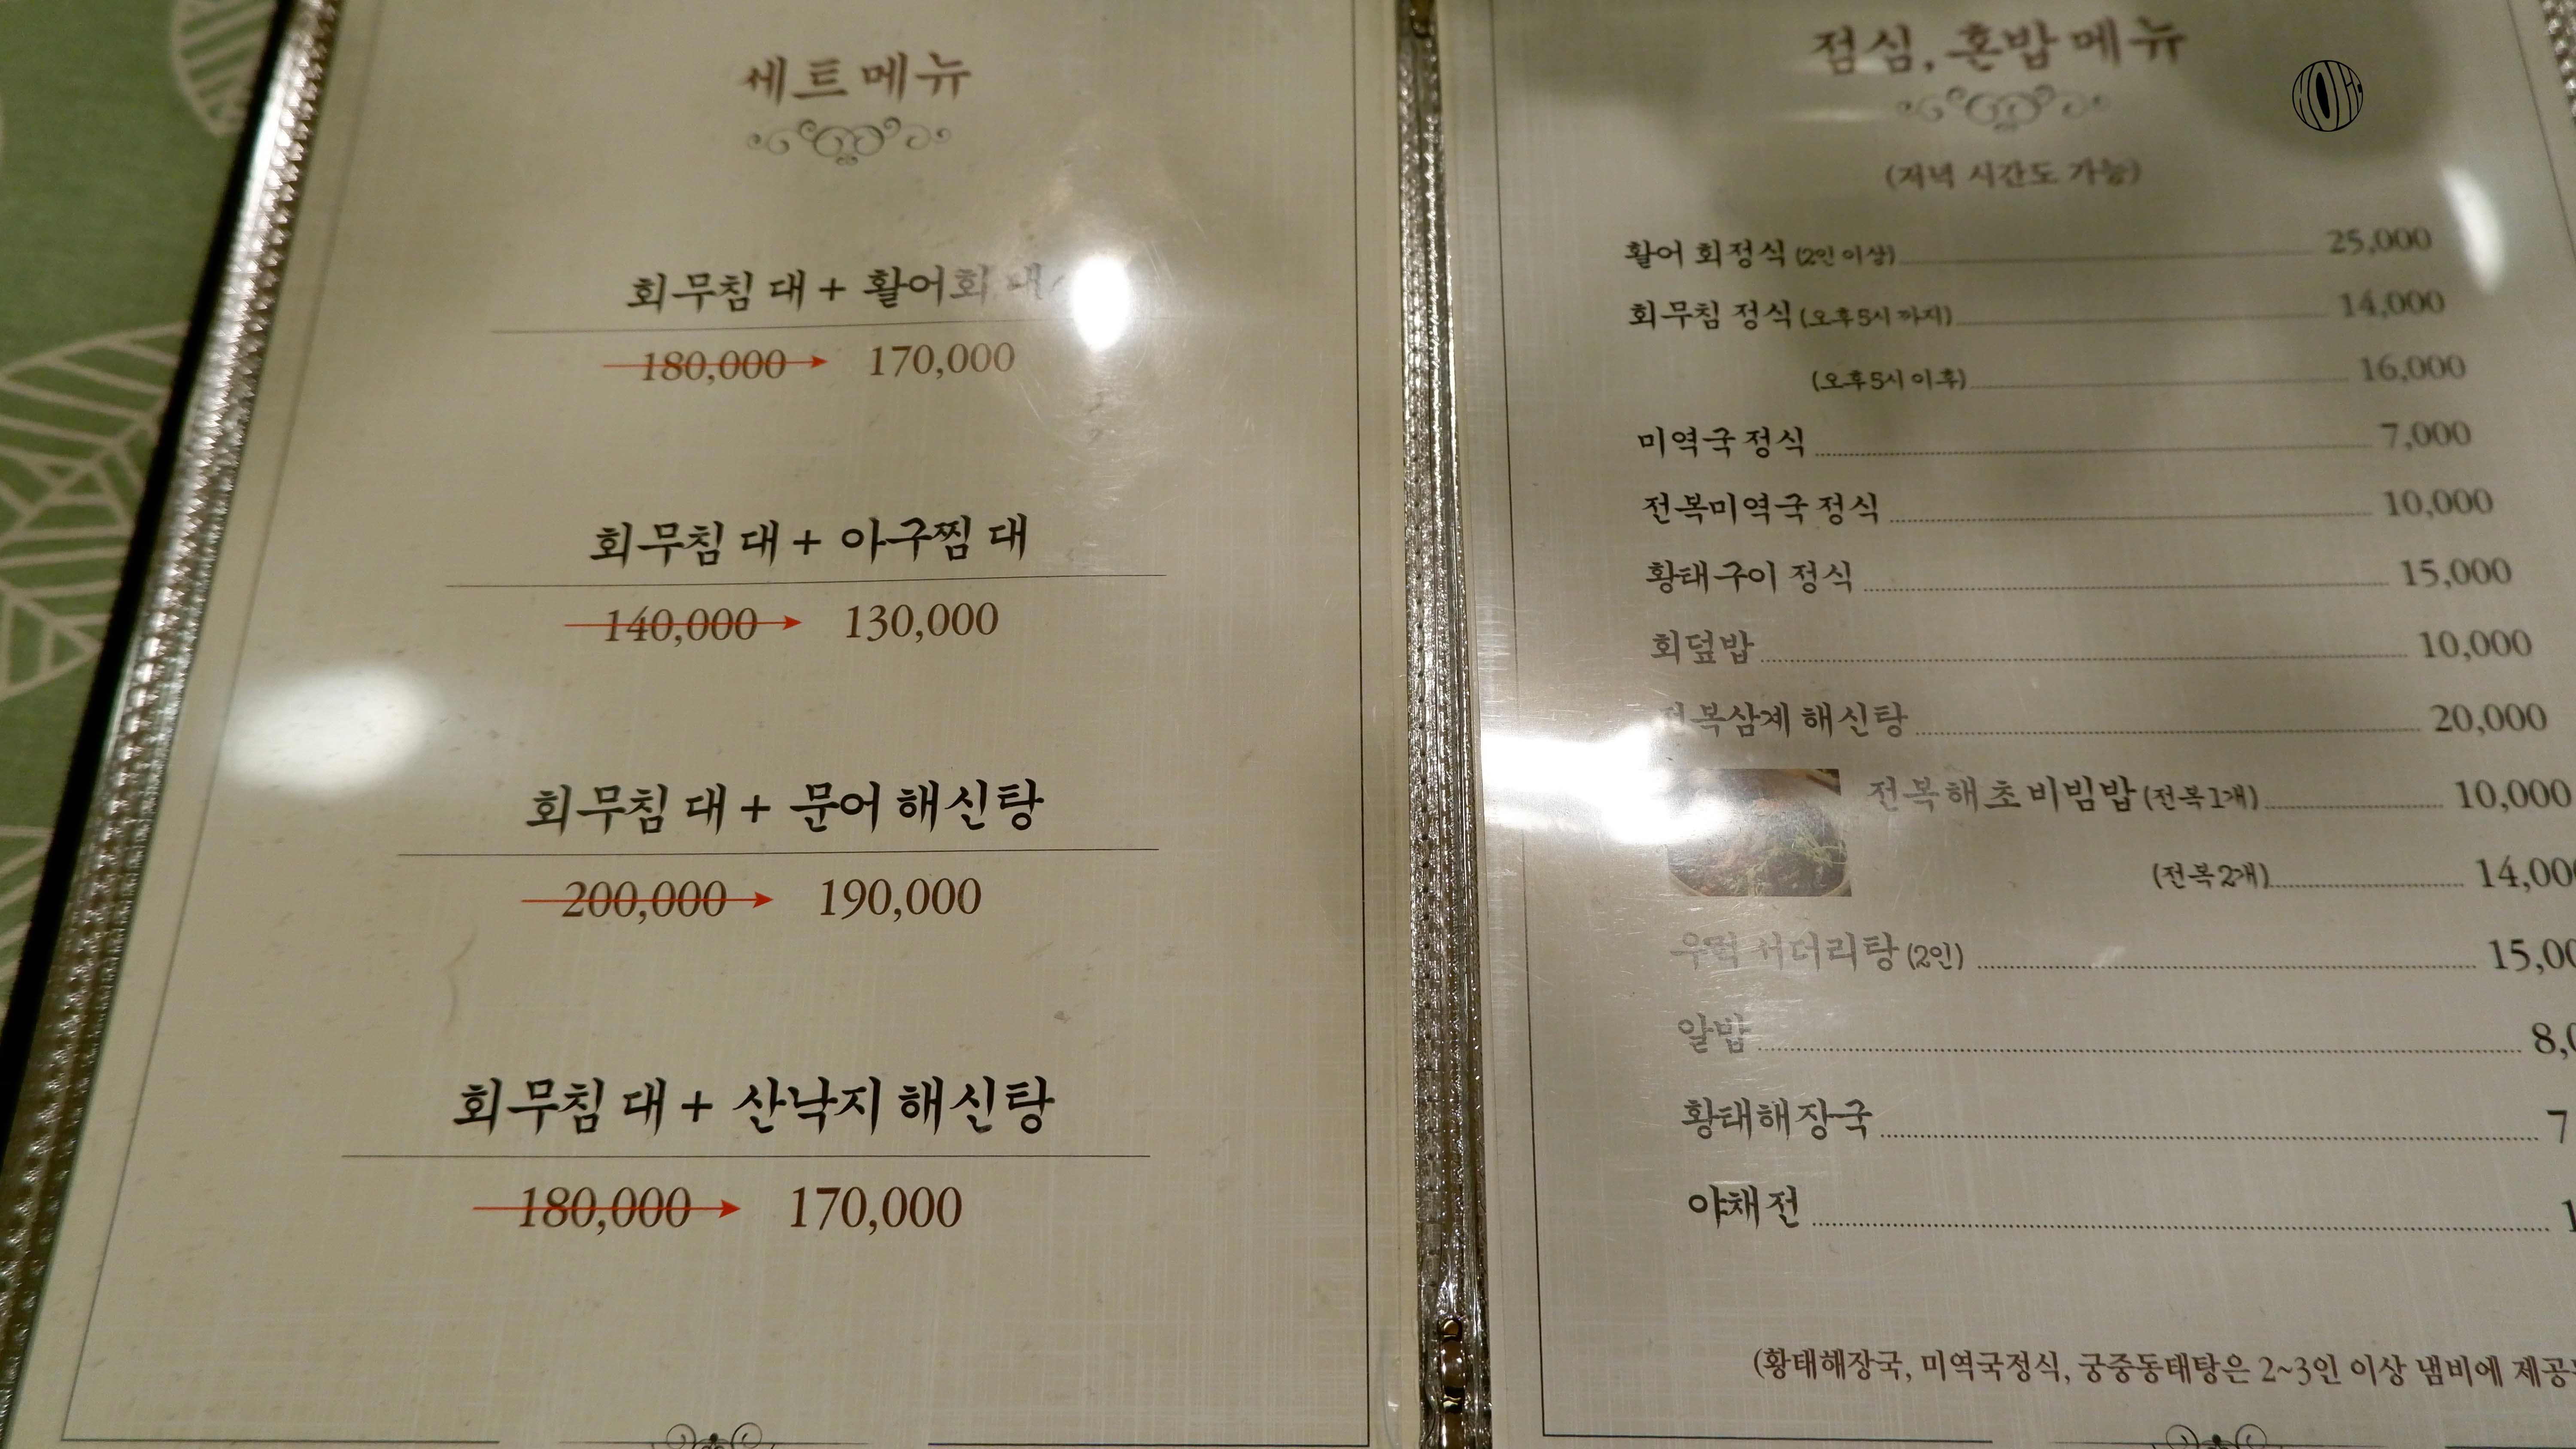 세트메뉴
회무침 대 + 활어회 대
180,000 → 170,000
회무침 대 + 아구찜 대
140,000 → 130,000
회무침 대 + 문어 해신탕
200,000 → 190,000
회무침 대 + 산낙지 해신탕
180,000 → 170,000
점심, 혼밥 메뉴
(저녁 시간도 가능)
활어 회정식 (2인 이상) 25,000
회무침 정식 (오후5시 까지) 14,000
(오후5시 이후) 16,000
미역국 정식 7,000
전복미역국 정식 10,000
황태구이 정식 15,000
회덮밥 10,000
전복삼계 해신탕 20,000
전복해초비빔밥 (전복1개) 10,000
(전복2개) 14,00
우럭 서더리탕 (2인) 15,00
알밥 8,
황태해장국 7
야채전 1
(황태해장국, 미역국정식, 궁중동태탕은 2~3인 이상 냄비에 제공